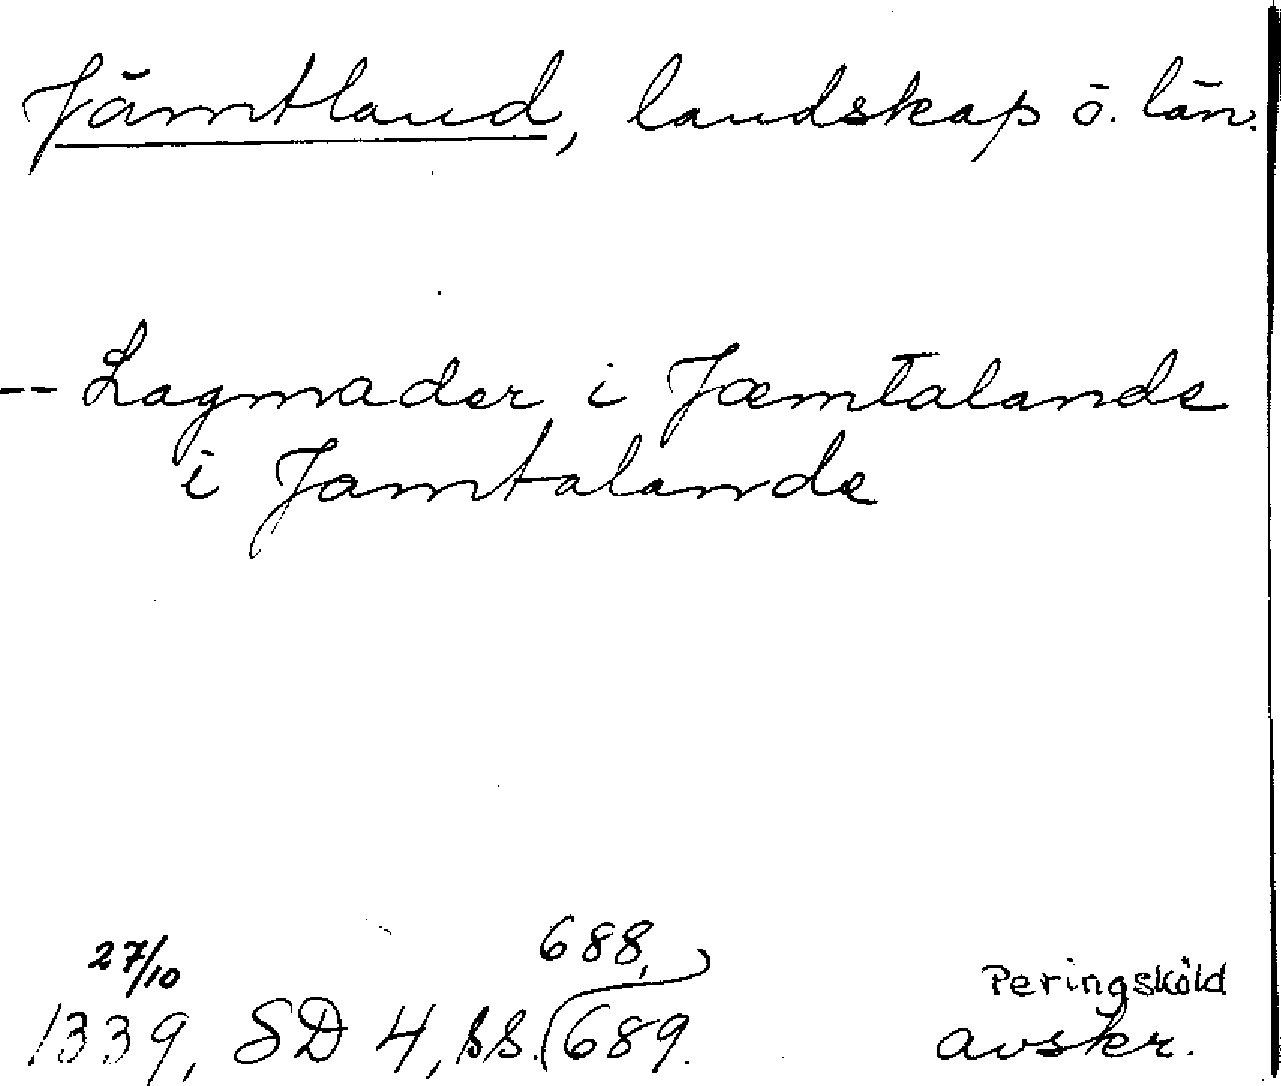 Jämtland, landskap ö. län.
-- Lagmader i Jæmtalande
i Jamtalande
27/10 688,
1339, SD 4, ss. 689. Peringsköld
avskr.